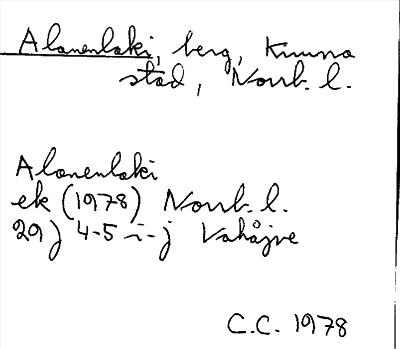 Alanenlaki, berg, Kiruna
stad, Norrb. l.
Alanenlaki
ek (1978) Norrb. l.
29J 4-5 i-j Vahåjve
C.C. 1978